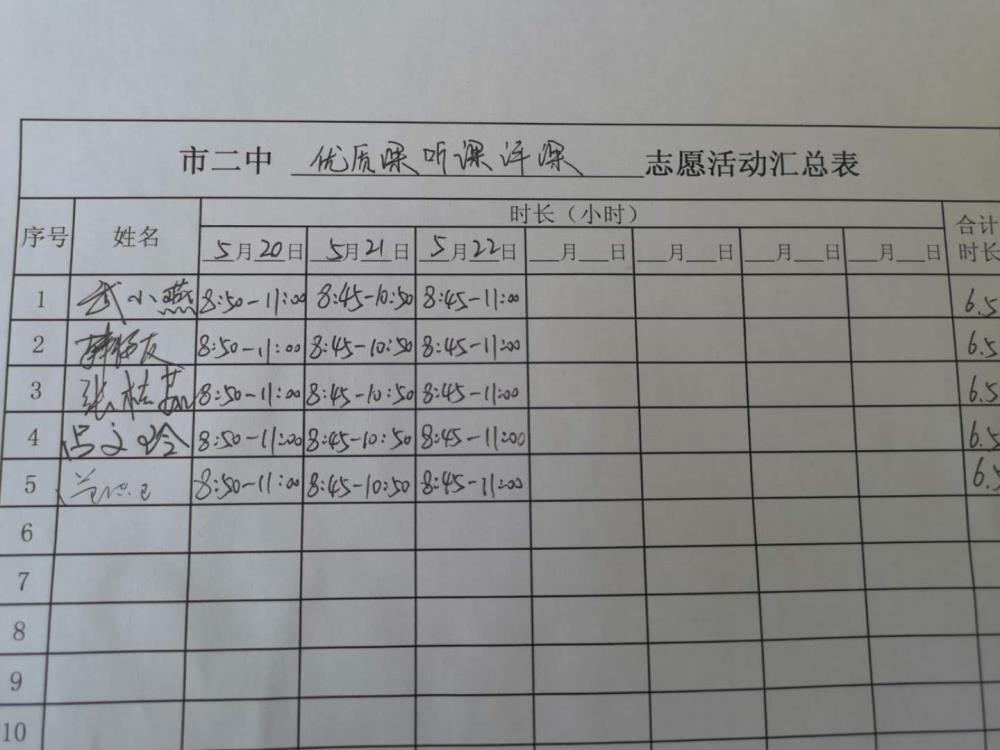 市二中 优质课听课评课 志愿活动汇总表
序号 姓名 时长（小时） 合计时长
5月20日 5月21日 5月22日 __月__日 __月__日 __月__日 __月__日
1 武小燕 8:50-11:00 8:45-10:50 8:45-11:00 6.5
2 8:50-11:00 8:45-10:50 8:45-11:00 6.5
3 张桂 8:50-11:00 8:45-10:50 8:45-11:00 6.5
4 吕文玲 8:50-11:00 8:45-10:50 8:45-11:00 6.5
5 8:50-11:00 8:45-10:50 8:45-11:00 6.5
6
7
8
9
10